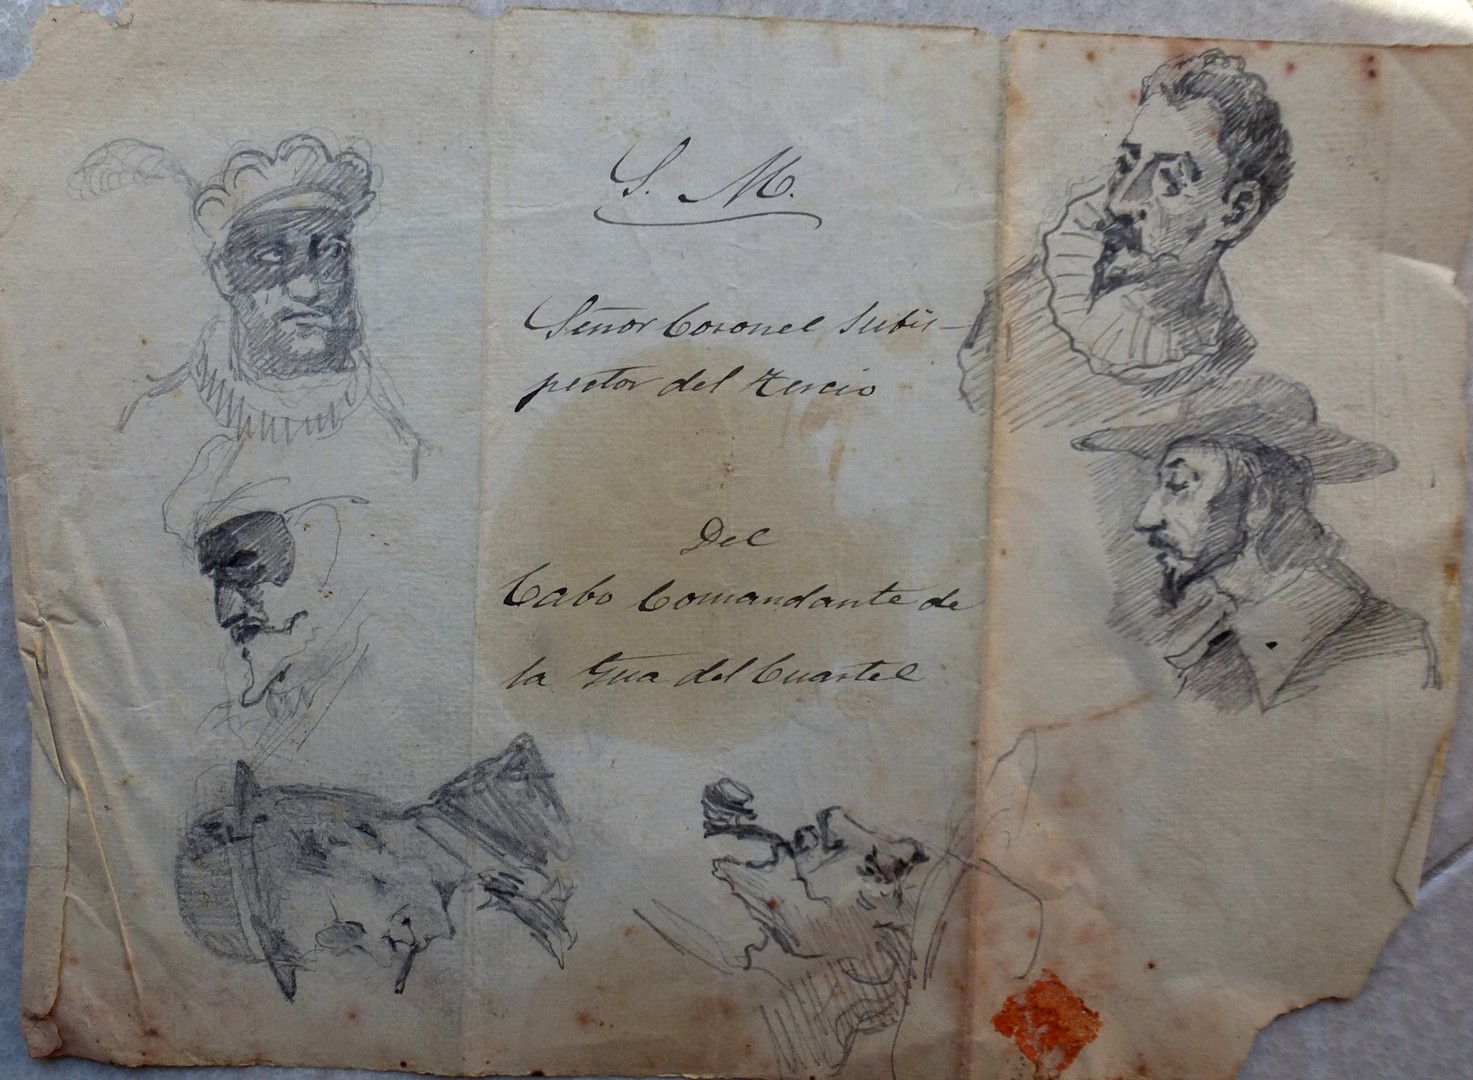 S. M.
Señor Coronel Subis-
pector del Tercio
Del
Cabo Comandante de
la Gua del Cuartel